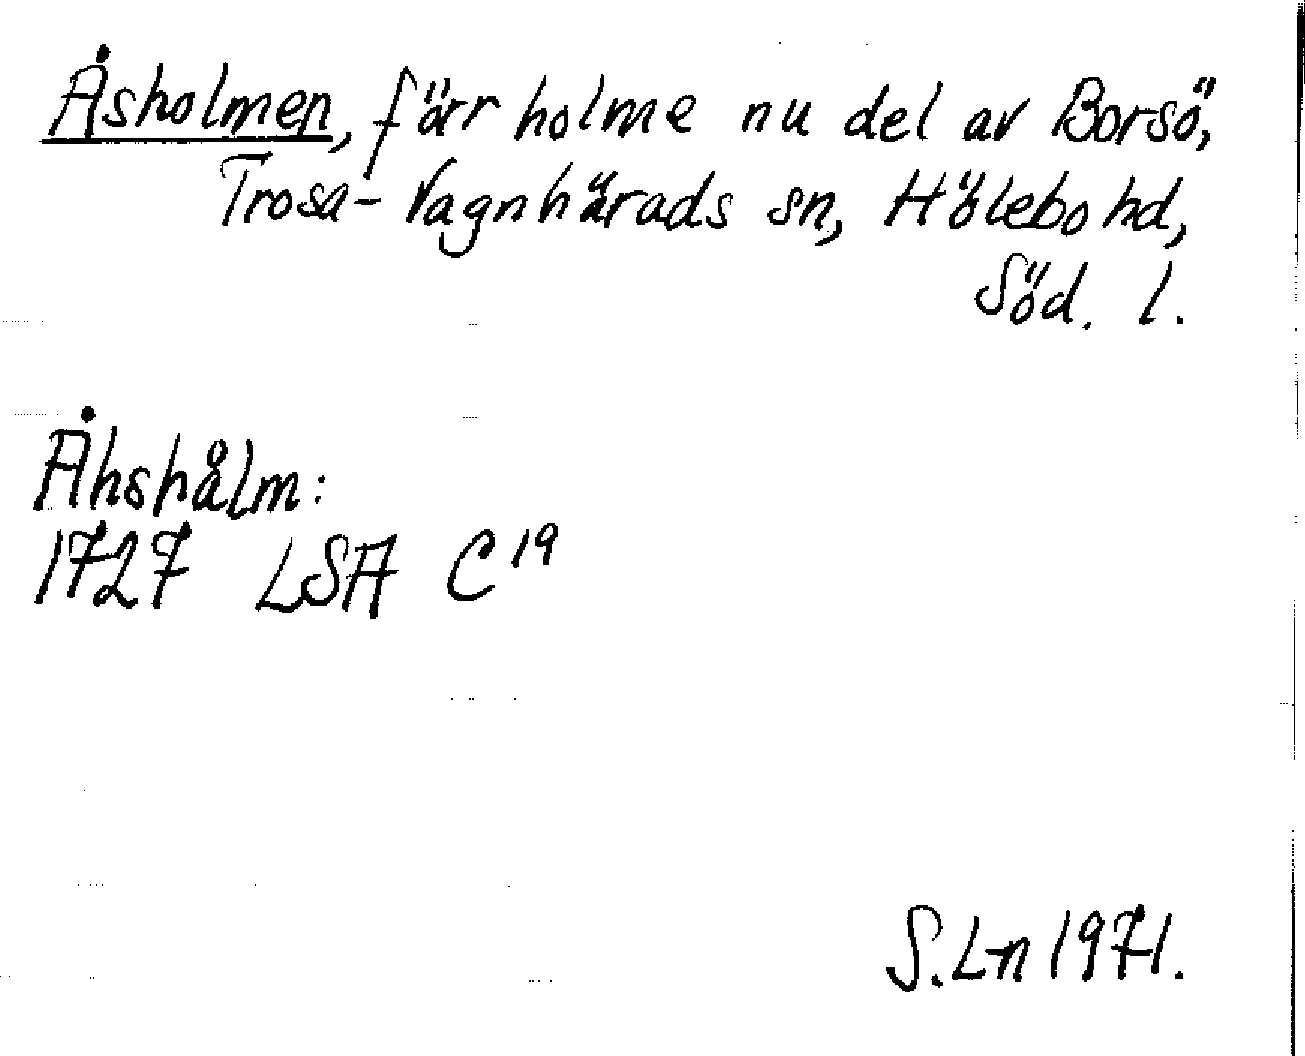 Åsholmen, förr holme nu del av Borsö,
Trosa-Vagnhärads sn, Hölebo hd,
Söd. l.
Åhshålm:
1727 LSA C19
S.Ln 1971.